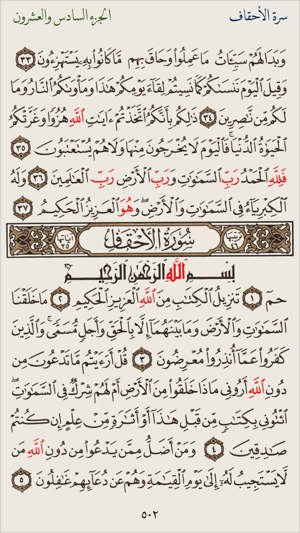 سورة الأحقاف الجزء السادس والعشرون
وَبَدَا لَهُمْ سَيِّـَٔاتُ مَا عَمِلُوا۟ وَحَاقَ بِهِم مَّا كَانُوا۟ بِهِۦ يَسْتَهْزِءُونَ ٣٣
وَقِيلَ ٱلْيَوْمَ نَنسَىٰكُمْ كَمَا نَسِيتُمْ لِقَآءَ يَوْمِكُمْ هَٰذَا وَمَأْوَىٰكُمُ ٱلنَّارُ وَمَا
لَكُم مِّن نَّٰصِرِينَ ٣٤ ذَٰلِكُم بِأَنَّكُمُ ٱتَّخَذْتُمْ ءَايَٰتِ ٱللَّهِ هُزُوًا وَغَرَّتْكُمُ
ٱلْحَيَوٰةُ ٱلدُّنْيَا ۚ فَٱلْيَوْمَ لَا يُخْرَجُونَ مِنْهَا وَلَا هُمْ يُسْتَعْتَبُونَ ٣٥
فَلِلَّهِ ٱلْحَمْدُ رَبِّ ٱلسَّمَٰوَٰتِ وَرَبِّ ٱلْأَرْضِ رَبِّ ٱلْعَٰلَمِينَ ٣٦ وَلَهُ
ٱلْكِبْرِيَآءُ فِى ٱلسَّمَٰوَٰتِ وَٱلْأَرْضِ ۖ وَهُوَ ٱلْعَزِيزُ ٱلْحَكِيمُ ٣٧
سُورَةُ الأَحْقَافِ
بِسْمِ ٱللَّهِ ٱلرَّحْمَٰنِ ٱلرَّحِيمِ
حمٓ ١ تَنزِيلُ ٱلْكِتَٰبِ مِنَ ٱللَّهِ ٱلْعَزِيزِ ٱلْحَكِيمِ ٢ مَا خَلَقْنَا
ٱلسَّمَٰوَٰتِ وَٱلْأَرْضَ وَمَا بَيْنَهُمَآ إِلَّا بِٱلْحَقِّ وَأَجَلٍ مُّسَمًّى ۚ وَٱلَّذِينَ
كَفَرُوا۟ عَمَّآ أُنذِرُوا۟ مُعْرِضُونَ ٣ قُلْ أَرَءَيْتُم مَّا تَدْعُونَ مِن
دُونِ ٱللَّهِ أَرُونِى مَاذَا خَلَقُوا۟ مِنَ ٱلْأَرْضِ أَمْ لَهُمْ شِرْكٌ فِى ٱلسَّمَٰوَٰتِ ۖ
ٱئْتُونِى بِكِتَٰبٍ مِّن قَبْلِ هَٰذَآ أَوْ أَثَٰرَةٍ مِّنْ عِلْمٍ إِن كُنتُمْ
صَٰدِقِينَ ٤ وَمَنْ أَضَلُّ مِمَّن يَدْعُوا۟ مِن دُونِ ٱللَّهِ مَن
لَّا يَسْتَجِيبُ لَهُۥٓ إِلَىٰ يَوْمِ ٱلْقِيَٰمَةِ وَهُمْ عَن دُعَآئِهِمْ غَٰفِلُونَ ٥
٥٠٢